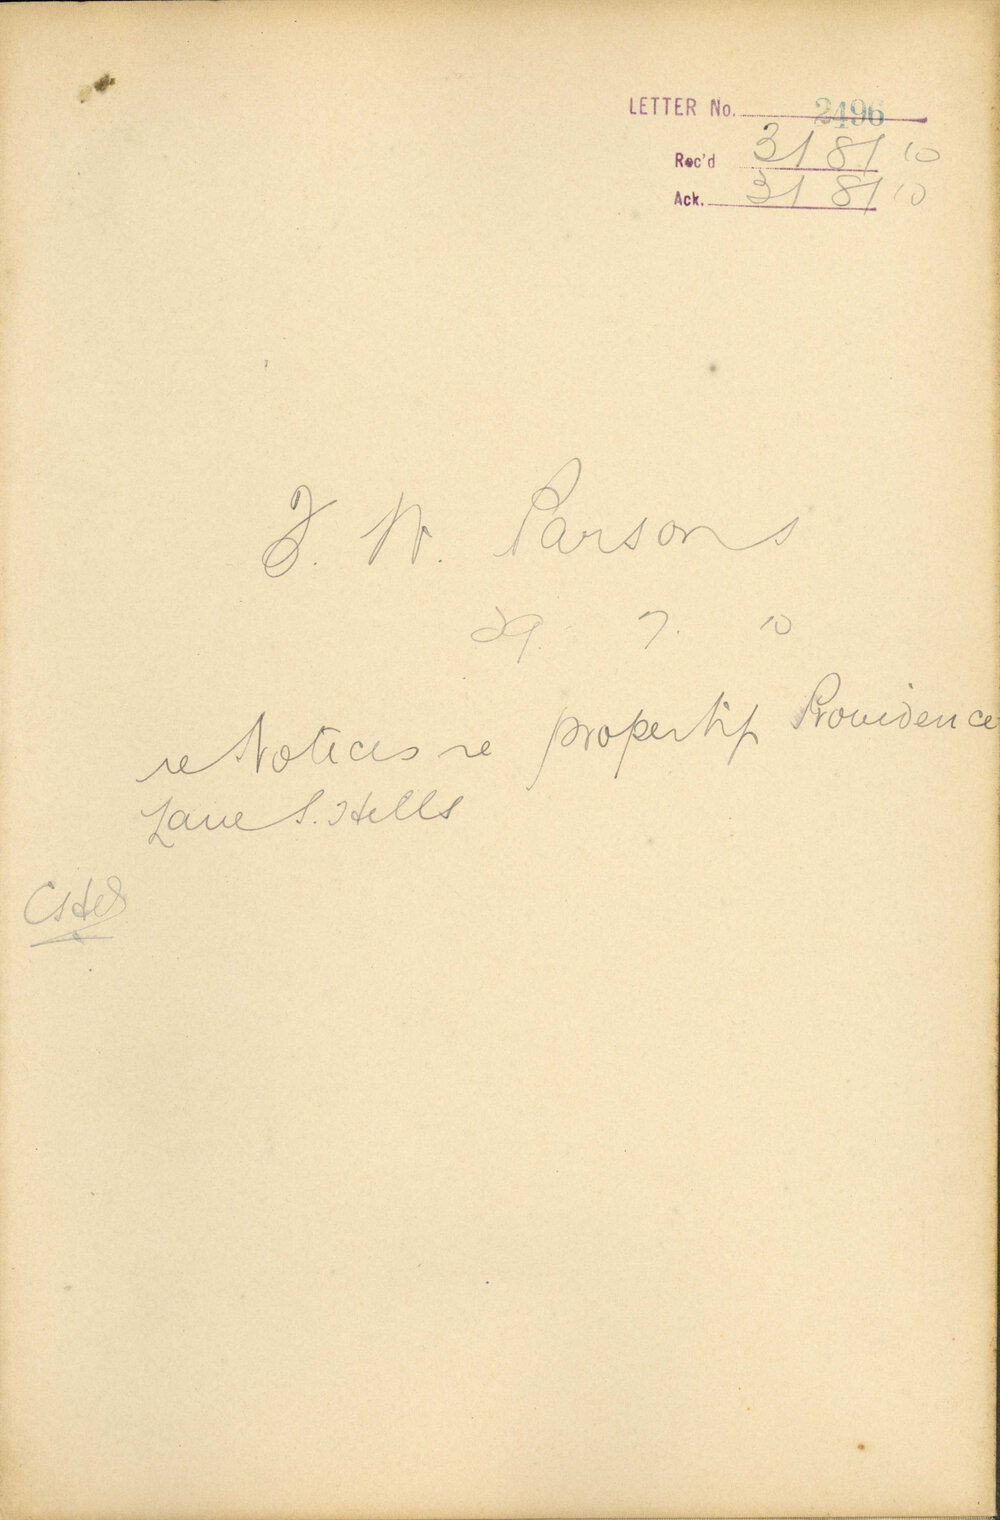 LETTER No. 2496
Rec'd 3/8/10
Ack. 3/8/10
F. W. Parsons
29. 7. 10
re Notices re property Providence
Lane S. Hells